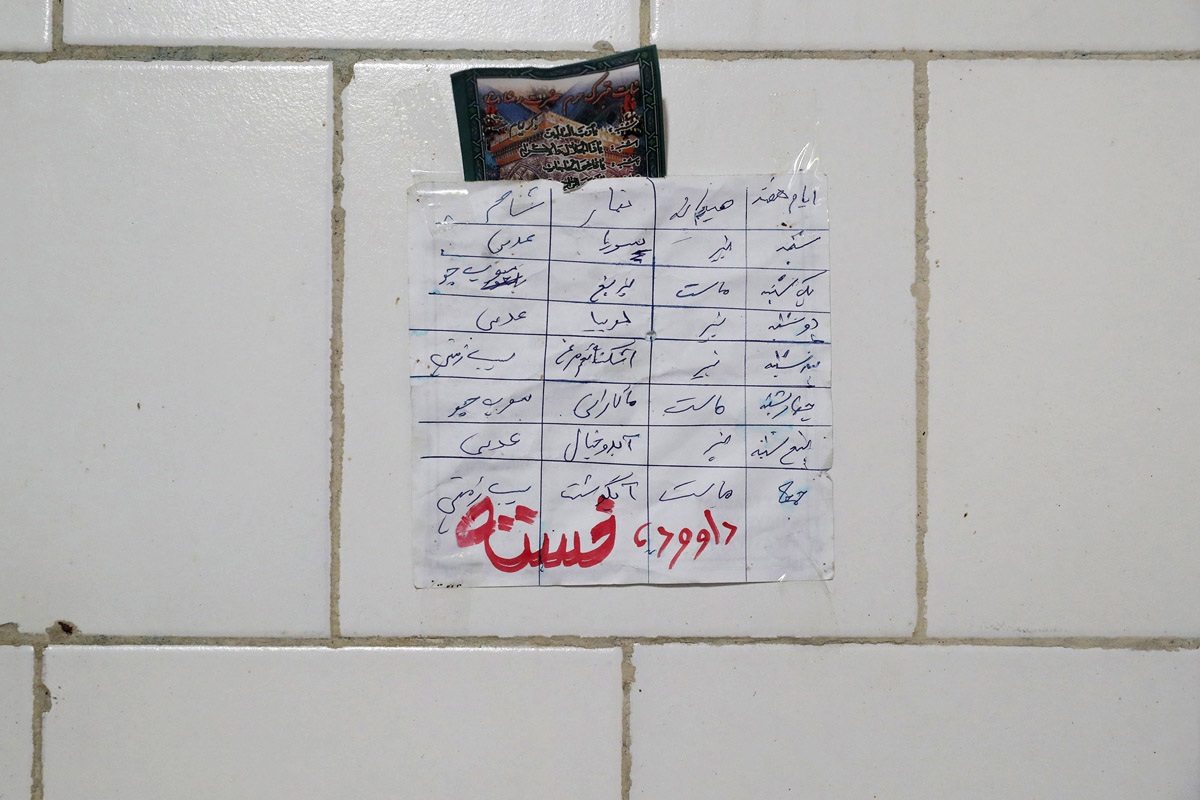 نبات تبرک حرم حضرت رضا (ع)
ایام هفته صبحانه نهار شام
شنبه پنیر سویا عدسی
یک شنبه ماست سوپ جو
دوشنبه پنیر لوبیا عدسی
سه شنبه پنیر اشکنه تخم مرغ سیب زمینی
چهارشنبه ماست ماکارانی سوپ جو
پنج شنبه پنیر آبدوخیار عدسی
جمعه ماست آبگوشت سیب زمینی
داوود، خسته